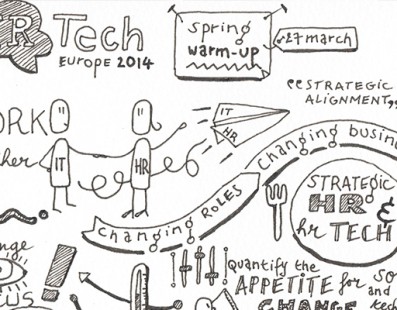 HR Tech
EUROPE 2014
Spring
warm-up
27 march
STRATEGIC
ALIGNMENT
IT
HR
IT
HR
Changing ROLES
Changing
STRATEGIC
HR &
hr TECH
Quantify the
APPETITE for
CHANGE
and